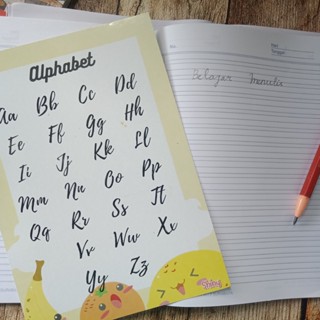 Alphabet
Aa Bb Cc Dd
Ee Ff Gg Hh
Ii Jj Kk Ll
Mm Nn Oo Pp
Qq Rr Ss Tt
Vv Ww Xx
Yy Zz
Belajar Menulis